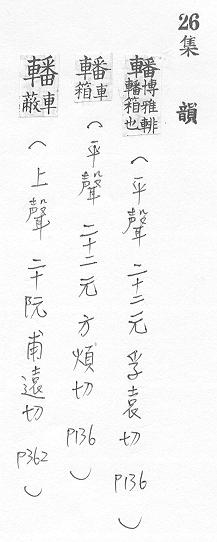 26 集 韻
轓博雅輫轓箱也 (平聲 二十二元 孚袁切 P136)
轓車箱 (平聲 二十二元 方煩切 P136)
轓車蔽 (上聲 二十阮 甫遠切 P362)